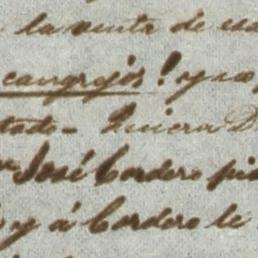 la venta de
cangrejos! y no
tado - Quiera D
José Cordero pi
y á Cordero le